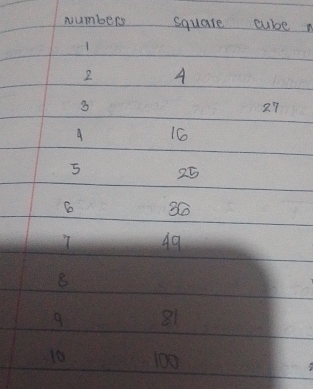 Numbers square cube
1
2 4
3 27
4 16
5 25
6 36
7 49
8
9 81
10 100